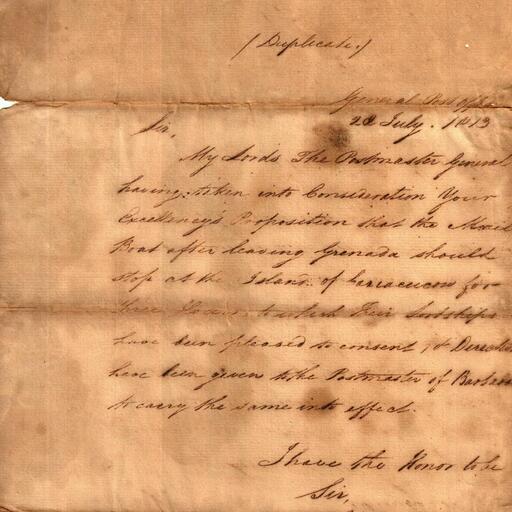 (Duplicate.)
General Post Office
28 July. 1813
Sir,
My Lords The Postmaster General
having taken into Consideration Your
Excellency's Proposition that the Mail
Boat after leaving Grenada should
stop at the Island of Carriacuow for
three Hours to which Their Lordships
have been pleased to consent, & Direct
have been given to the Postmaster of Barbad
to carry the same into effect.
I have the Honor to be
Sir,